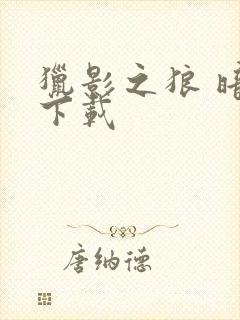 獵影之狼 暗
下載
唐纳德